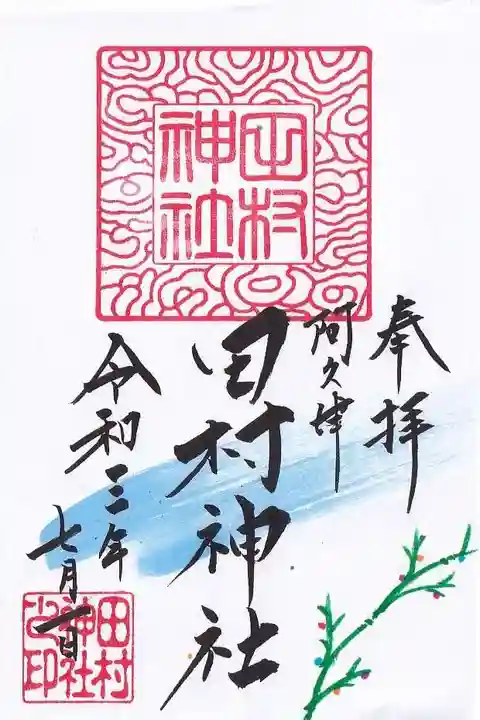 田村
神社
奉拝
阿久津
田村神社
令和三年
七月一日
田村
神社
之印